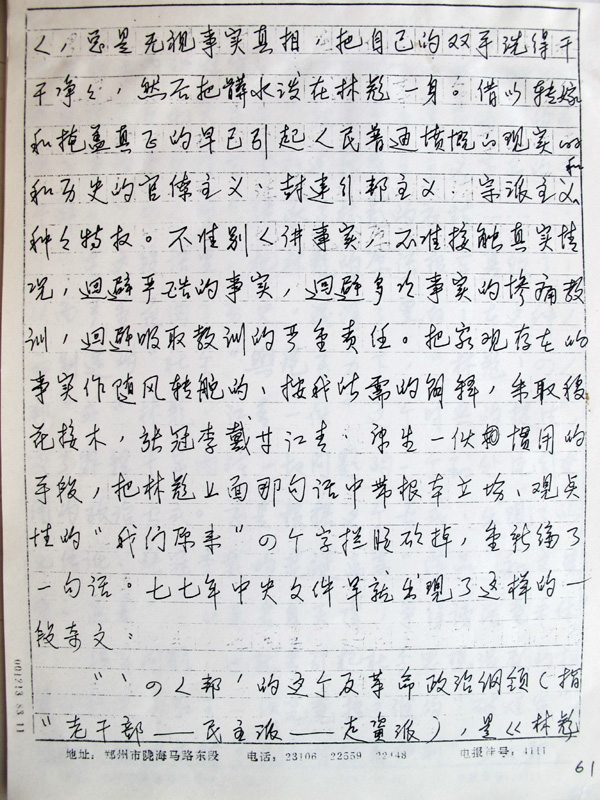 人，总是无视事实真相，把自己的双手洗得干
干净净，然后把髒水泼在林彪一身。借以转嫁
和掩盖真正的早已引起人民普通愤慨的现实的
和
和历史的官僚主义、封建行邦主义 宗派主义
种种特权。不准别人讲事实，不准接触真实情
况，迴避平冤的事实，迴避多次事实的惨痛教
训，迴避吸取教训的严重责任。把客观存在的
事实作随风转舵的、按我所需的解释，采取移
花接木，张冠李戴 江青 一伙 惯用的
手段，把林彪上面那句话中带根本立场、观点
性的“我们原来”四个字拦腰砍掉，重新编了
一句话。七七年中央文件早就出现了这样的一
段杂文：
“‘四人邦’的这个反革命政治纲领（指
“老干部——民主派——走资派），是《林彪
地址：郑州市陇海马路东段 电话：23106 22559 22448 电报挂号：4111
61